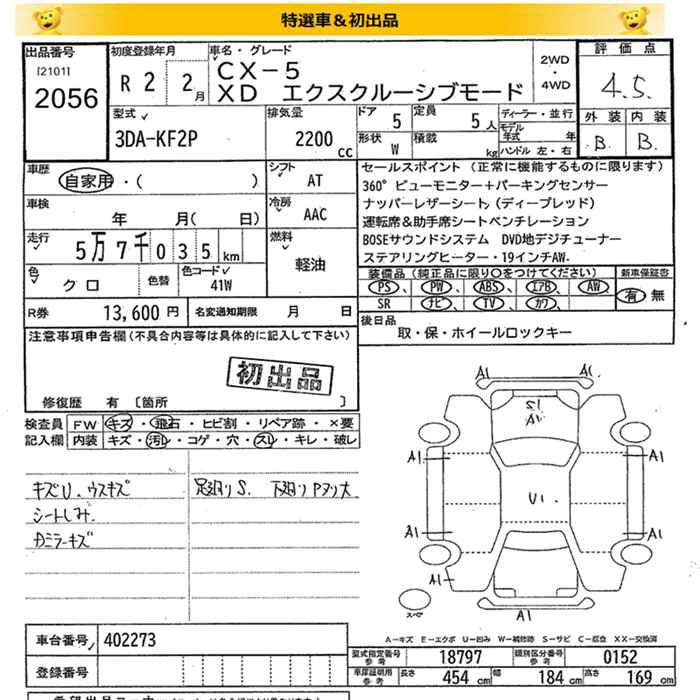 特選車＆初出品
出品番号
[2101]
2056
初度登録年月
R 2 2月
車名・グレード
CX-5
XD エクスクルーシブモード
2WD
・
4WD
評価点
4.5
外装 内装
B B
型式
3DA-KF2P
排気量
2200 cc
ドア 5
定員 5人
形状 W
積載 kg
ディーラー・並行
モデル年式 年
ハンドル 左・右
車歴
自家用・( )
シフト AT
車検
年 月( 日)
冷房 AAC
走行
5万7千035km
燃料
軽油
色
クロ
色替
色コード
41W
R券 13,600円
名変通知期限 月 日
セールスポイント (正常に機能するものに限ります)
360°ビューモニター＋パーキングセンサー
ナッパーレザーシート(ディープレッド)
運転席＆助手席シートベンチレーション
BOSEサウンドシステム DVD地デジチューナー
ステアリングヒーター・19インチAW.
装備品(純正品に限り○をつけてください)
新車保証書
PS、PW、ABS、エアB、AW
SR ナビ、TV、カワ、
有 無
後日品
取・保・ホイールロックキー
注意事項申告欄(不具合内容等は具体的に記入して下さい)
初出品
修復歴 有 [箇所 ]
検査員記入欄
FW キズ・飛石・ヒビ割・リペア跡・×要
内装 キズ・汚レ・コゲ・穴・スレ・キレ・破レ
キズU.ウスキズ
足廻りS. 下廻りPヌリ大
シートしみ.
カミラーキズ
A1 A1
S1
A1
A1 A1
U1
A1 A1
A1 A1
A1
スペア
A-キズ E-エクボ U-凹み W-補修跡 S-サビ C-腐食 XX-交換済
車台番号 402273
登録番号
型式指定番号 参考 18797
類別区分番号 参考 0152
車庫証明用 参考 長さ 454cm 幅 184cm 高さ 169cm